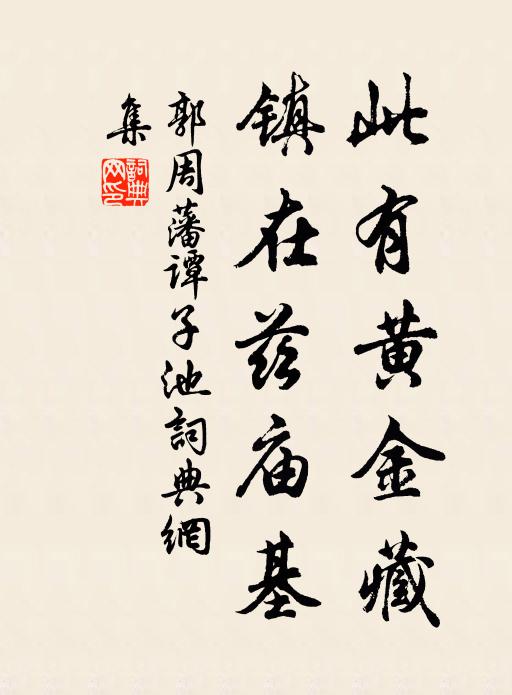 此有黄金藏
镇在茲庙基
郭周藩谭子池詞典網
集
詞典
网印